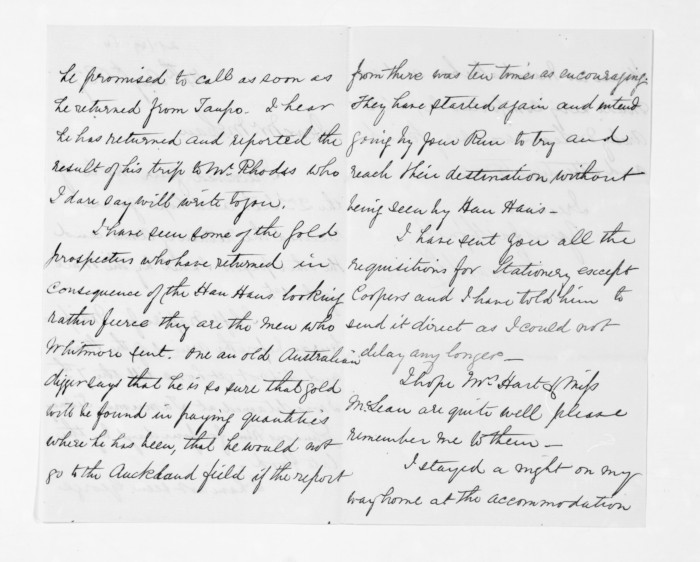 he promised to call as soon as
he returned from Taupo. I hear
he has returned and reported the
result of his trip to Mr. Rhodes who
I dare say will write to you.
I have seen some of the gold
prospectors who have returned in
consequence of the Hau Haus looking
rather fierce they are the men who
Whitmore sent. One an old Australian
digger says that he is so sure that gold
will be found in paying quantities
where he has been, that he would not
go to the Auckland field if the report
from there was ten times as encouraging
They have started again and intend
going by your Run to try and
reach their destination without
being seen by Hau Haus -
I have sent you all the
requisitions for Stationery except
Coopers and I have told him to
send it direct as I could not
delay any longer -
I hope Mrs Hart & Miss
McLean are quite well please
remember me to them -
I stayed a night on my
way home at the accommodation